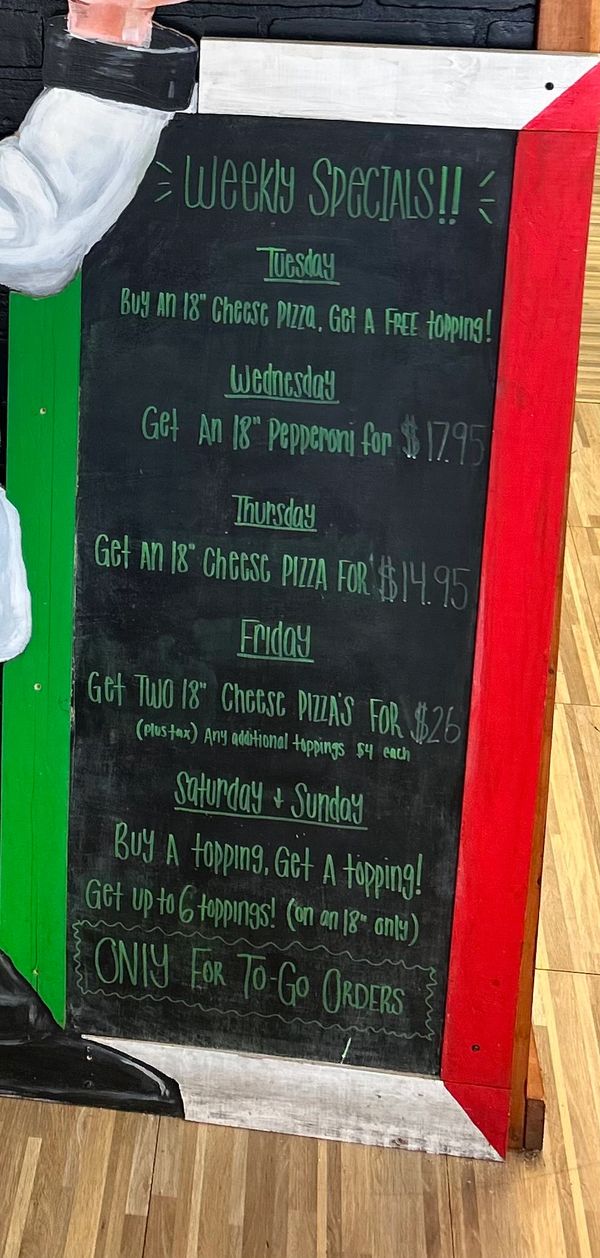 Weekly Specials!!
Tuesday
Buy An 18" Cheese Pizza, Get A FREE topping!
Wednesday
Get An 18" Pepperoni for $17.95
Thursday
Get An 18" Cheese Pizza For $14.95
Friday
Get Two 18" Cheese Pizza's For $26
(plus tax) Any additional toppings $4 each
Saturday + Sunday
Buy A topping, Get A topping!
Get up to 6 toppings! (on an 18" only)
ONly For To-Go Orders